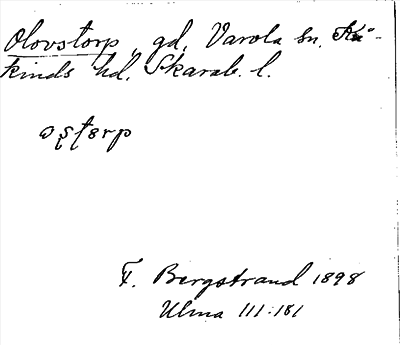 Olovstorp, gd, Varola sn. Kå-
kinds hd. Skarab. l.
ƨʂʈɵrp
F. Bergstrand 1898
Ulma 111:181